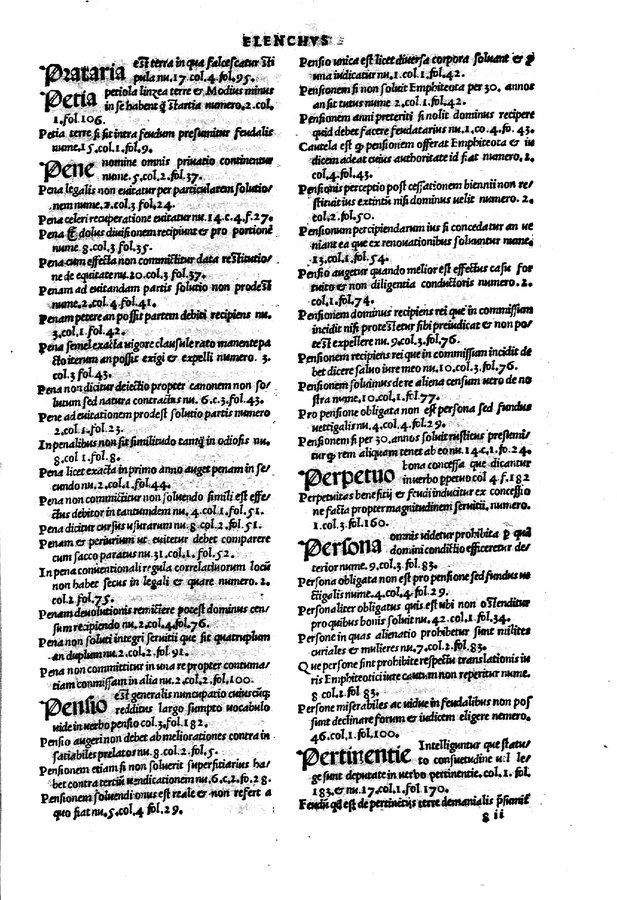 ELENCHVS
Prataria est terra in qua falcescatur sti
pula nu.17.col.4.fol.95.
Petia periola linzea terre & Modius minus
in se habent q̃ startia numero.2.col.
1.fol.106.
Petia terre si sit intra feudum presumitur feudalis
nume.15.col.1.fol.9.
Pene nomine omnis priuatio continentur
nume.5.col.2.fol.37.
Pena legalis non euitatur per particularem solutio/
nem nume.2.col.3.fol.24.
Pena celeri recuperatione euitatur nu.14.c.4.f.27.
Pena & dolus diuisionem recipiunt & pro portionē
nume 8.col.3.fol.35.
Pena cum effecta non committitur data restitutio/
ne de equitate nu.20.col.3.fol.37.
Penam ad euitandam partis solutio non prodest
nume.2.col.4.fol.41.
Penam petere an possit partem debiti recipiens nu.
3.col.1.fol.42.
Pena semel exacta uigore clausule rato manente pa
cto iterum an possit exigi & expelli numero. 3.
col.3 fol.43.
Pena non dicitur deiectio propter canonem non so/
lutum sed natura contractus nu.6.c.3.fol.43.
Pene ad euitationem prodest solutio partis numero
2.col.1.fol.23.
In penalibus non fit similitudo tamq̃ in odiosis nu.
8 col 1.fol.8.
Pena licet exacta in primo anno auget penam in se/
cundo nu.2.col.1.fol.44.
Pena non committitur non soluendo simili est effe/
ctus debitor in tantundem nu. 4.col.1.fol.51.
Pena dicitur cursus usurarum nu.8.col.2.fol.51.
Penam & periurium ut euitetur debet comparere
cum sacco paratus nu.31.col.1.fol.52.
In pena conuentionali regula correlatiuorum locū
non habet secus in legali & quare numero.2.
col.2.fol.75.
Penam deuolutionis remittere potest dominus cen/
sum recipiendo nu.2.col.4.fol.76.
Pena non soluti integri seruitii que sit quatruplum
an duplum nu.2.col.2.fol.91.
Pena non committitur in una re propter contuma/
tiam commissam in alia nu.2.col.2.fol.100.
Pensio est generalis nuncupatio cuiuscūq;
redditus largo sumpto uocabulo
uide in uerbo pensio col.3.fol.182.
Pensio augeri non debet ab meliorationes contra in
satiabiles prelatos nu.8.col.2.fol.5.
Pensionem etiam si non soluerit superfitiarius ha/
bet contra tertiū uendicationem nu.6.c.2.fo.28.
Pensionem soluendi onus est reale & non refert a
quo fiat nu.5.col.4 fol.29.
Pensio unica est licet diuersa corpora soluant & p
una iudicatur nu.1.col.1.fol.42.
Pensionem si non soluit Emphiteota per 30. annos
an sit tutus nume 2.col.1.fol.42.
Pensionem anni preteriti si nolit dominus recipere
quid debet facere feudatarius nu.1.co.4.fo. 43.
Cautela est q̃ pensionem offerat Emphiteota & iu
dicem adeat cuius authoritate id fiat numero.1.
col.4.fol.43.
Pensionis perceptio post cessationem biennii non re/
stituit ius extintū nisi dominus uelit numero. 2.
col.2.fol.50.
Pensionum percipiendarum ius si concedatur an ue
niant ea que ex renouationibus soluuntur nume.
13.col.1.fol.54.
Pensio augetur quando melior est effectus casu for
tuito & non diligentia conductoris numero.2.
col.1.fol.74.
Pensionem dominus recipiens rei que in commissum
incidit nisi protestetur sibi preiudicat & non po/
test expellere nu.9.col.3.fol.76.
Pensionem recipiens rei que in commissum incidit de
bet dicere saluo iure meo nu.10.col.3.fol.76.
Pensionem soluimus de re aliena censum uero de no
stra nume.10.col.1.fol.77.
Pro pensione obligata non est persona sed fundus
uettigalis nu.4.col.4.fol.29.
Pensionem si per 30.annos soluit rusticus presumi/
tur q̃ rem aliquam tenet ab eo nu.14.c.1.fo.24.
Perpetuo bona concessa que dicantur
in uerbo ppetuo col 4 f.182
Perpetuitas beneficii & feudi inducitur ex concessio
ne facta propter magnitudinem seruitii, numero.
1.col.3.fol.160.
Persona omnis uidetur prohibita p quā
domini conditio efficeretur de/
terior nume.9.col.3 fol.83.
Persona obligata non est pro pensione sed fundus ue
ctigalis nume.4.col.4.fol.29.
Personaliter obligatus quis est ubi non ostenditur
pro quibus bonis soluit nu.42.col.1.fol.34.
Persone in quas alienatio prohibetur sunt milites
curiales & mulieres nu.7.col.2.fol.83.
Que persone sint prohibite respectu translationis iu
ris Emphiteotici iure cautum non reperitur nume.
8 col.1.fol 83.
Persone miserabiles ac uidue in feudalibus non pos
sunt declinare forum & iudicem eligere nemero.
46.col.1.fol.100.
Pertinentie Intelliguntur que statu/
to consuetudine uel le/
ge sunt deputate in uerbo pertinentie.col.1.fol.
183.& nu.17.col.1.fol 170.
Feudū qd est de pertinētiis terre demanialis
g ii